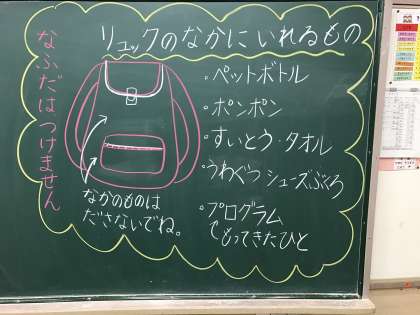 リュックのなかにいれるもの
なふだはつけません
・ペットボトル
・ポンポン
・すいとう・タオル
・うわぐつ シューズぶくろ
・プログラム
もってきたひと
なかのものは
ださないでね。